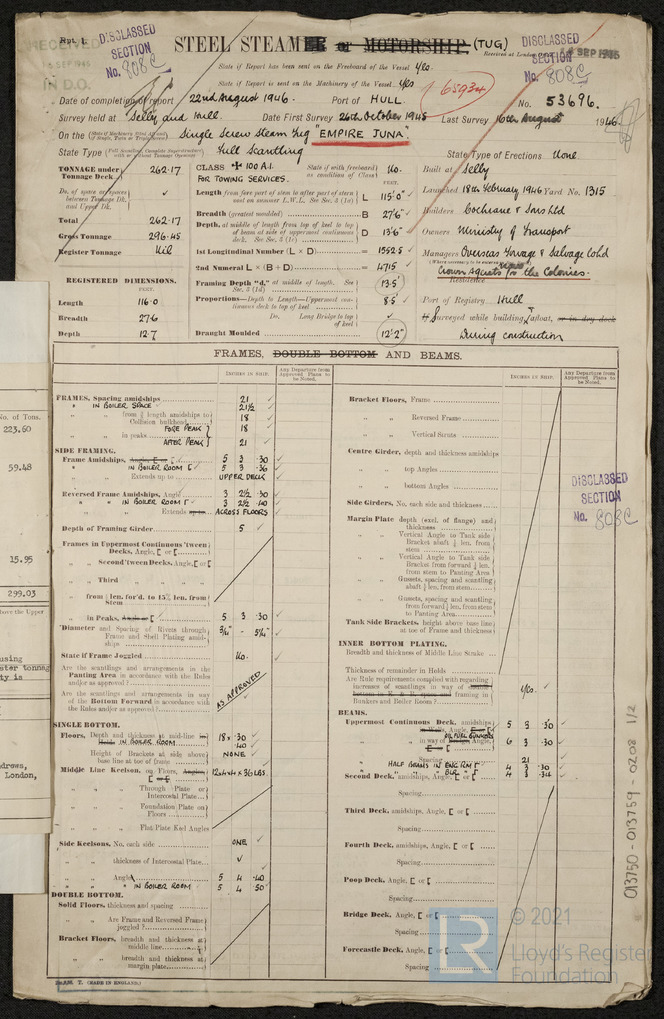 Rpt. 1.
RECEIVED
IN D.O.
DISCLASSED
SECTION
No. 808C
STEEL STEAMER or MOTORSHIP. (TUG)
DISCLASSED
SECTION
No. 808C
State if Report has been sent on the Freeboard of the Vessel Yes.
State if Report is sent on the Machinery of the Vessel. Yes
65934
Date of completion of report 22nd August 1946. Port of HULL No. 53696.
Survey held at Selby and Hull. Date First Survey 26th October 1945 Last Survey 16th August 1946
On the (State if Machinery fitted Aft and if Single, Twin or Triple Screw) Single Screw Steam Tug "EMPIRE JUNA".
State Type Full Scantling State Type of Erections None
TONNAGE under Tonnage Deck 262.17
Total 262.17
Gross Tonnage 296.45
Register Tonnage Nil
REGISTERED DIMENSIONS.
FEET.
Length 116.0
Breadth 27.6
Depth 12.7
CLASS ✠ 100 A.1. State if with freeboard as condition of Class No.
FOR TOWING SERVICES.
FEET.
Length from fore part of stem to after part of stern post on summer L.W.L. See Sec. 3 (1a) L 115'0"
Breadth (greatest moulded) B 27'6"
Depth, at middle of length from top of keel to top of beam at side of uppermost continuous deck. See Sec. 3 (1c) D 13'6"
1st Longitudinal Number (L × D) = 1552.5
2nd Numeral L × (B + D) = 4715
Framing Depth "d," at middle of length. See Sec. 3 (1d) 13.5
Proportions—Depth to Length—Uppermost continuous deck to top of keel 8.5
Do. Long Bridge to top of keel
Draught Moulded 12'2"
Built at Selby
Launched 18th February 1946 Yard No. 1315
Builders Cochrane & Sons Ltd
Owners Ministry of Transport
Managers Overseas Towage & Salvage Co Ltd
Crown Agents for the Colonies.
Residence
Port of Registry Hull
If Surveyed while building, afloat, or in dry dock
During construction
FRAMES, DOUBLE BOTTOM AND BEAMS.
INCHES IN SHIP.
Any Departure from Approved Plans to be Noted.
INCHES IN SHIP.
Any Departure from Approved Plans to be Noted.
FRAMES, Spacing amidships 21
" IN BOILER SPACE 21½
" " from ⅗ length amidships to Collision bulkhead 18
" " in peaks FORE PEAK 18
AFTER PEAK 21
SIDE FRAMING.
Frame Amidships, Angle, E or [ 5 3 .30
" " IN BOILER ROOM [ 5 3 .36
" " Extends up to UPPER DECK
Reversed Frame Amidships, Angle 3 2½ .30
" " IN BOILER ROOM 3 2½ .40
" " Extends up to ACROSS FLOORS
Depth of Framing Girder 5
Frames in Uppermost Continuous 'tween Decks, Angle, [ or [
" " Second 'tween Decks, Angle, [ or [
" " Third " "
" " from ⅕ len. for'd. to 15% len. from Stem
" " in Peaks, Angle or [ 5 3 .30
Diameter and Spacing of Rivets through Frame and Shell Plating amidships 3/4" - 5¼"
State if Frame Joggled No.
Are the scantlings and arrangements in the Panting Area in accordance with the Rules and/or as approved?
Are the scantlings and arrangements in way of the Bottom Forward in accordance with the Rules and/or as approved?
AS APPROVED
SINGLE BOTTOM.
Floors, Depth and thickness at mid-line in Hold 18 × .30
IN BOILER ROOM .40
Height of Brackets at side above base line at toe of frame NONE
Middle Line Keelson, on Floors, Angles, [ or E 12×4×4×36 LBS.
" " Through Plate or Intercostal Plate
" " Foundation Plate on Floors
" " Flat Plate Keel Angles
Side Keelsons, No. each side ONE
" " thickness of Intercostal Plate
" " Angles 5 4 .40
" " IN BOILER ROOM 5 4 .50
DOUBLE BOTTOM.
Solid Floors, thickness and spacing
" " Are Frame and Reversed Frame joggled?
Bracket Floors, breadth and thickness at middle line
" " breadth and thickness at margin plate
Bracket Floors, Frame
" " Reversed Frame
" " Vertical Struts
Centre Girder, depth and thickness amidships
" " top Angles
" " bottom Angles
Side Girders, No. each side and thickness
Margin Plate depth (excl. of flange) and thickness
" " Vertical Angle to Tank side Bracket abaft ⅕ len. from stem
" " Vertical Angle to Tank side Bracket from forward ⅕ len. from stem to Panting Area
" " Gussets, spacing and scantling abaft ⅕ len. from stem
" " Gussets, spacing and scantling from forward ⅕ len. from stem to Panting Area
Tank Side Brackets, height above base line at toe of Frame and thickness
INNER BOTTOM PLATING.
Breadth and thickness of Middle Line Strake
Thickness of remainder in Holds
Are Rule requirements complied with regarding increases of scantlings in way of double bottom in E. & B. spaces and framing in Bunkers and Boiler Room? Yes.
BEAMS.
Uppermost Continuous Deck, amidships 5 3 .30
OIL FUEL BUNKERS
in way of 6 3 .30
Spacing 21
HALF BEAMS IN ENG RM 4 3 .30
Second Deck, amidships, Angle, [ or [ 4 3 .34
Spacing
Third Deck, amidships, Angle, [ or [
Spacing
Fourth Deck, amidships, Angle, [ or [
Spacing
Poop Deck, Angle, [ or [
Spacing
Bridge Deck, Angle, [ or [
Spacing
Forecastle Deck, Angle, [ or [
Spacing
DISCLASSED
SECTION
No. 808C
013750-013759-0208 1/2
No. of Tons.
223.60
59.48
15.95
299.03
above the Upper
using
ster tonnag
ty is
ndrews,
London,
(MADE IN ENGLAND.)
© 2021
Lloyd's Register
Foundation
LR